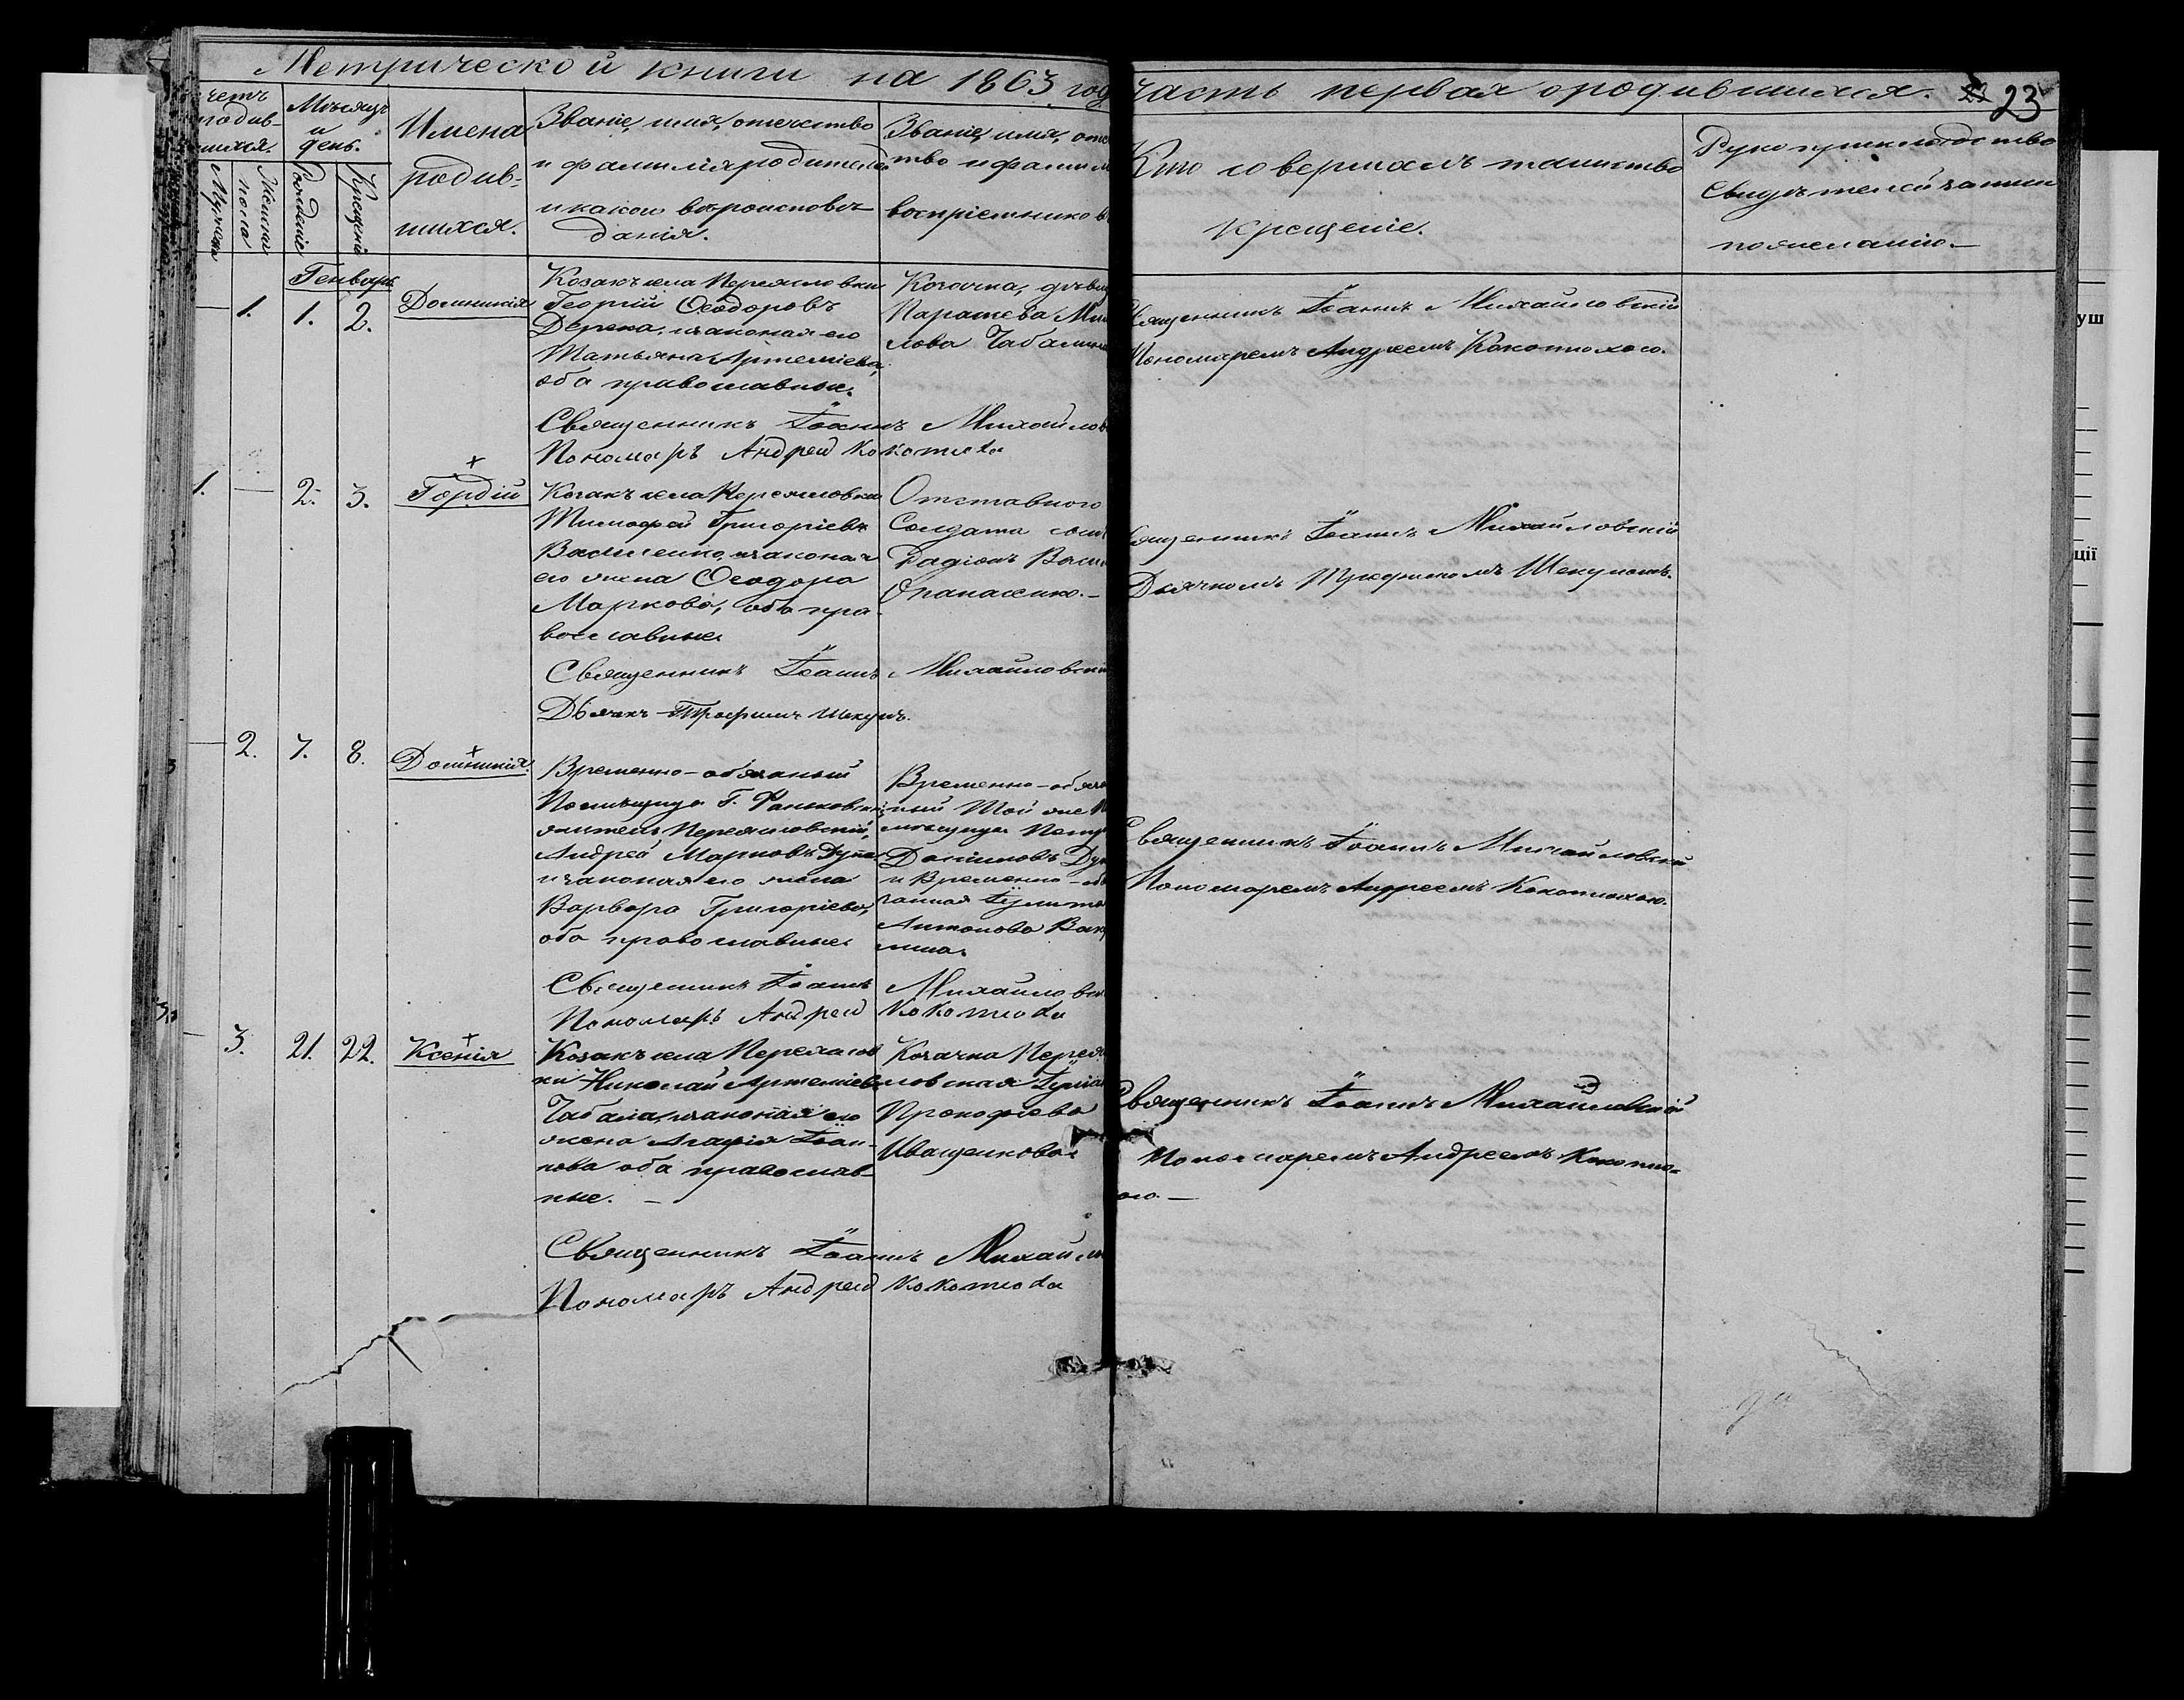 Метрической книги на 1863 год
Часть первая о родившихся. 22 23
Счетъ родив-шихся.
Мѣсяцъ и день.
Имена родив-шихся.
Званіе, имя, отечество
и фамилія родителей
и какого вѣроисповѣ-
данія.
Званіе, имя, отче
тво и фамилі
воспріемниковъ
Кто совершалъ таинство
крещенія.
Рукоприкладство
свидѣтелей записи
по желанію.—
Мужеска
Женска
пола
Рожденіе
Крещеніе
Генварь
— 1. 1. 2. Домникія
Козакъ села Переясловки
Георгій Ѳеодоровъ
и законная его
Татьяна Артеміева,
оба православные.
Козачка, дѣвиц
Парасева Ми
лова
Священникъ Іоаннъ Михайловскій
Пономаремъ Андреемъ Кокотюхою.
Священникъ Іоаннъ Михайлов
Пономарь Андрей Кокотюха
1. — 2. 3. Гордій
Козакъ села Переясловки
Тимофей Григоріевъ
Василенко, и законная
его жена Ѳеодора
Маркова, оба пра-
вославные
Отставного
Солдата сынъ
Радіонъ Васи
Опанасенко.—
Священникъ Іоаннъ Михайловскій
Дьячкомъ Трофимомъ Шекуномъ.
Священникъ Іоаннъ Михайловскі
Дьячокъ Трофимъ Шекунъ.
— 2. 7. 8. Домникія.
Временно-обязаный
Помѣщица Г.
житель Переясловскій,
Андрей Марковъ
и законная его жена
Варвара Григоріева,
оба православные
Временно-обяза
ный Той же По
мѣщицы Петр
Даниловъ
и Временно-обя
занная Іулита
Антонова
Священникъ Іоаннъ Михайловскій
Пономаремъ Андреемъ Кокотюхою.
Священникъ Іоаннъ Михайловск
Пономарь Андрей Кокотюха
— 3. 21. 22. Ксенія
Козакъ села Переяслов
ки Николай Артеміевъ
Чабала, и законная его
жена Агафія Іоан-
нова оба православ-
ные. —
Козачка Переяс
ловская
Прокофіева
Иващенкова
Священникъ Іоаннъ Михайловскій
Пономаремъ Андреемъ Кокотю-
хою.—
Священникъ Іоаннъ Михайло
Пономарь Андрей Кокотюха
уш
ції